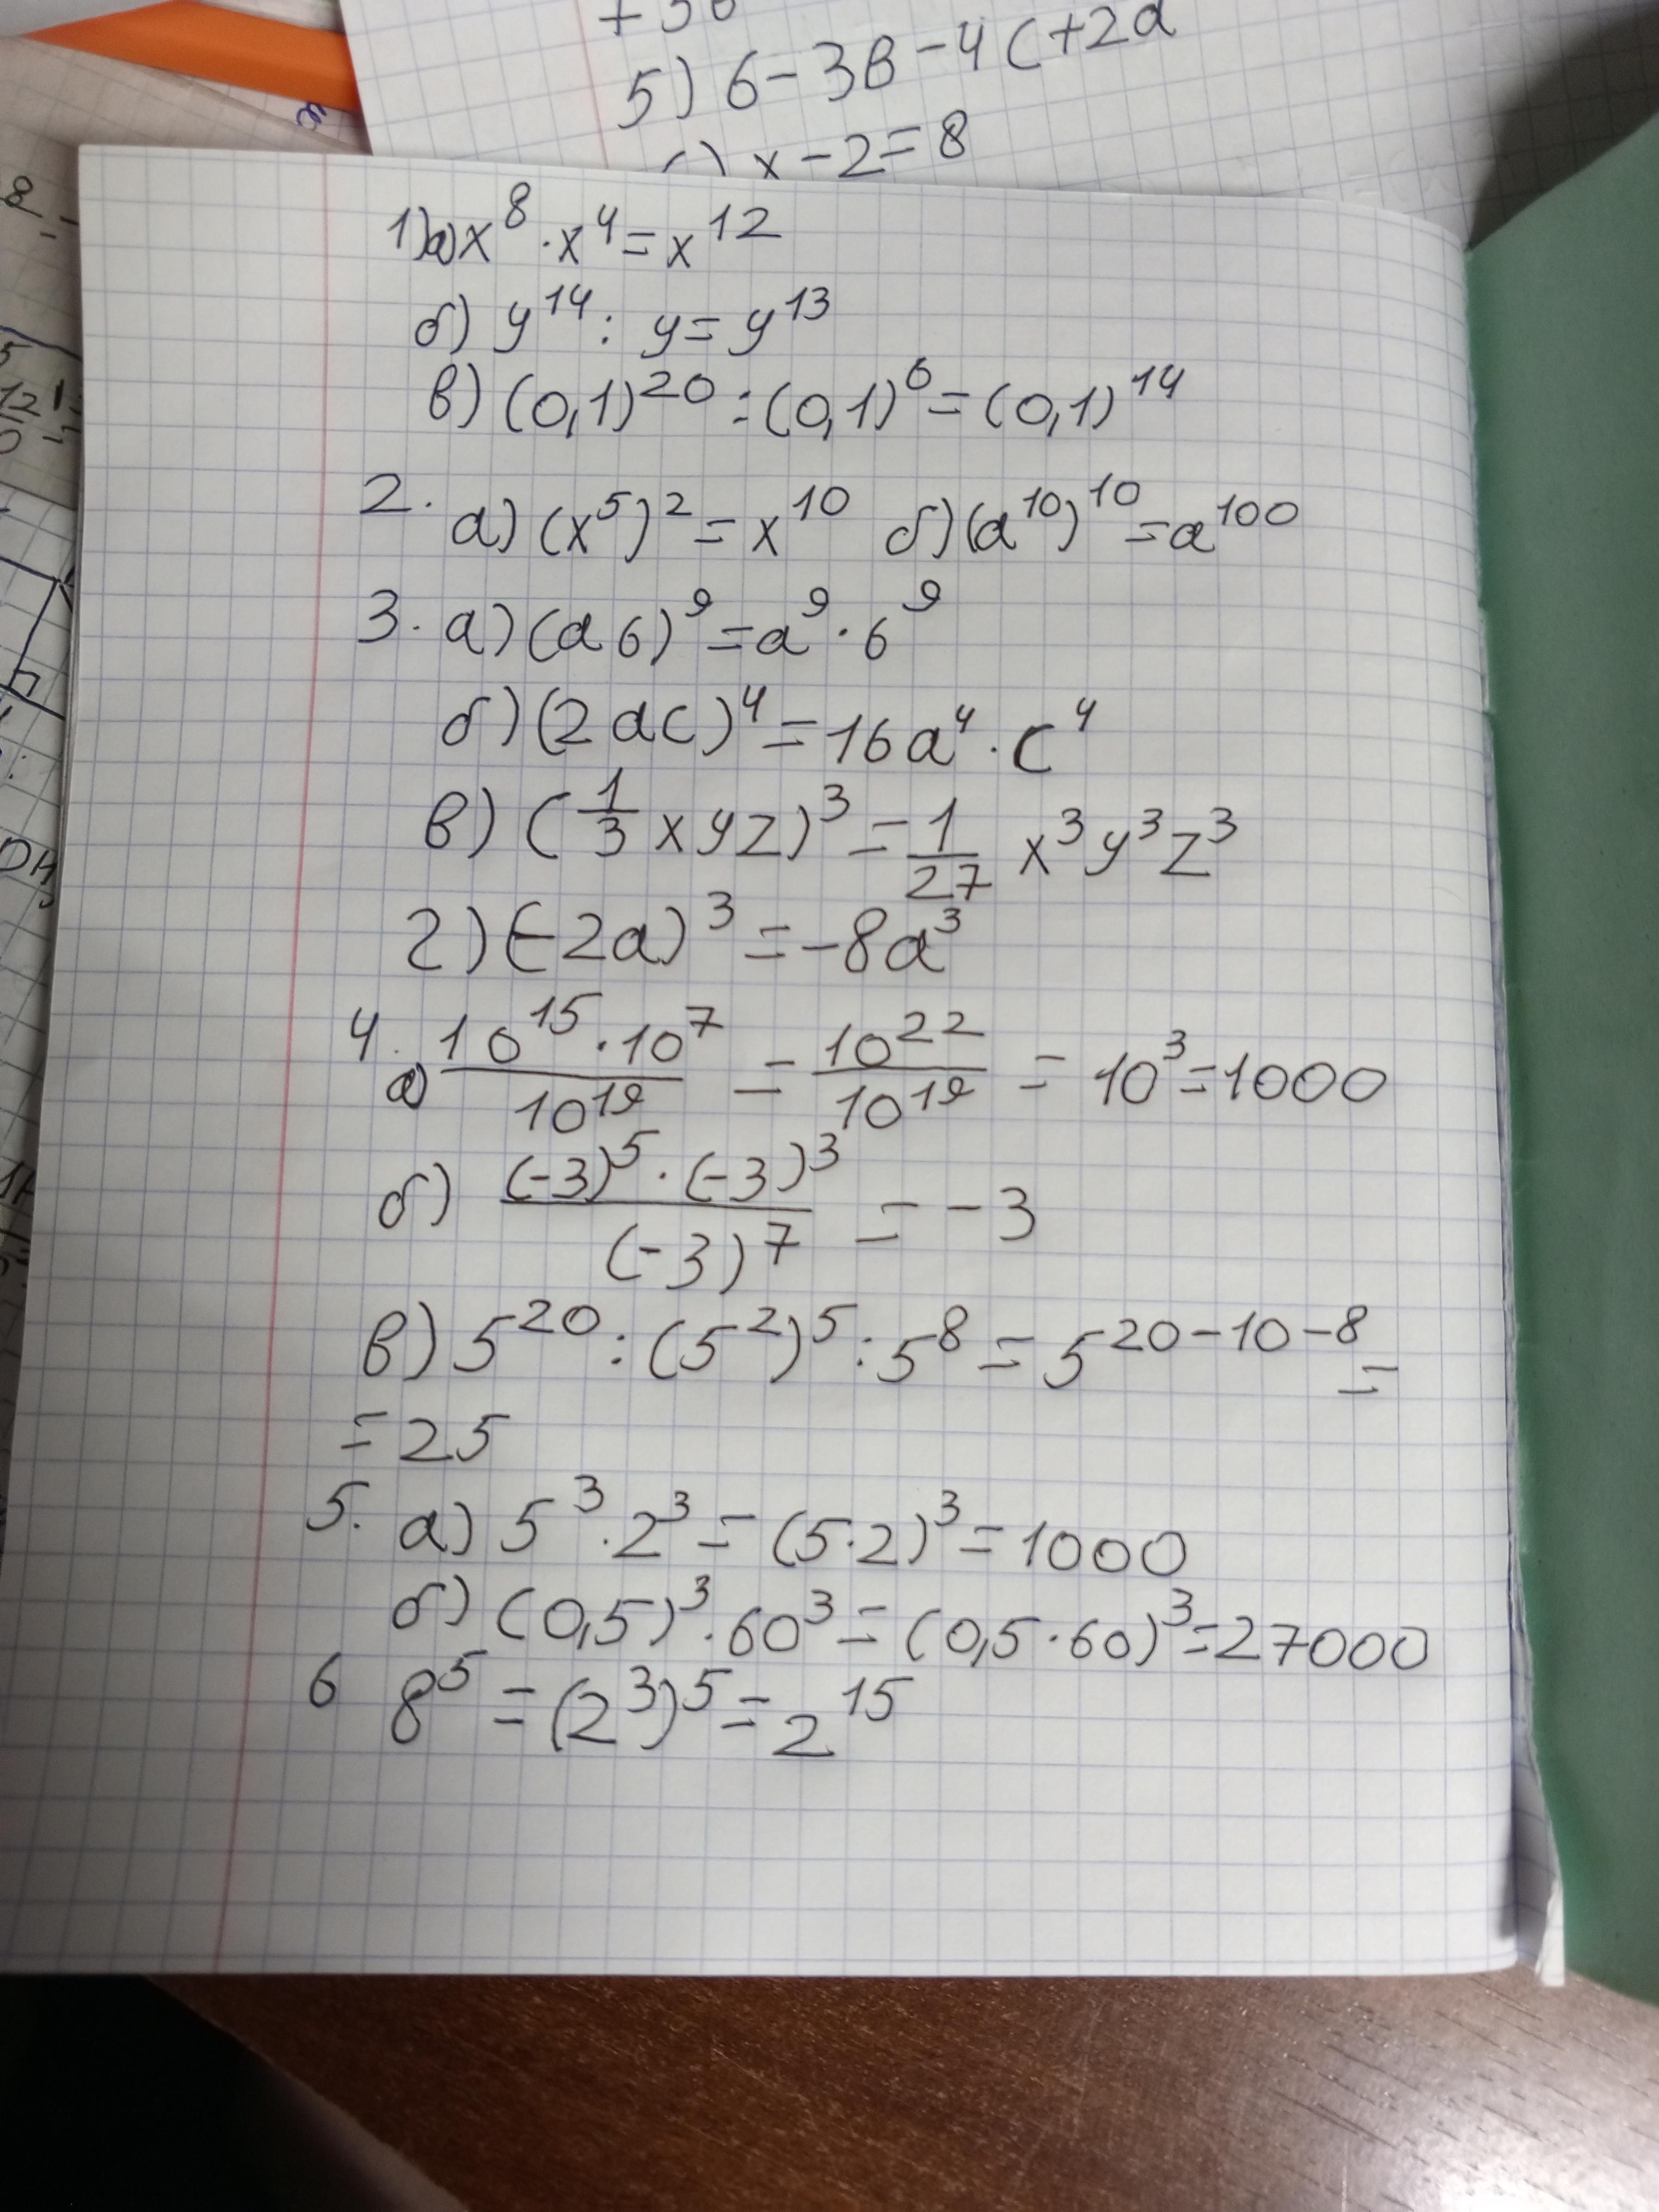 5) 6-3в-4с+2а
x-2=8
1)а) x⁸·x⁴=x¹²
б) y¹⁴: y=y¹³
в) (0,1)²⁰:(0,1)⁶=(0,1)¹⁴
2. а) (x⁵)²=x¹⁰ б) (a¹⁰)¹⁰=a¹⁰⁰
3. а) (aб)⁹=a⁹·б⁹
б) (2ac)⁴=16a⁴·c⁴
в) (1/3 xyz)³=1/27 x³y³z³
г) (-2a)³=-8a³
4. а) 10¹⁵·10⁷/10¹⁹ = 10²²/10¹⁹ = 10³=1000
б) (-3)⁵·(-3)³/(-3)⁷ = -3
в) 5²⁰:(5²)⁵:5⁸=5²⁰⁻¹⁰⁻⁸=
=25
5. а) 5³·2³=(5·2)³=1000
б) (0,5)³·60³=(0,5·60)³=27000
6 8⁵=(2³)⁵=2¹⁵